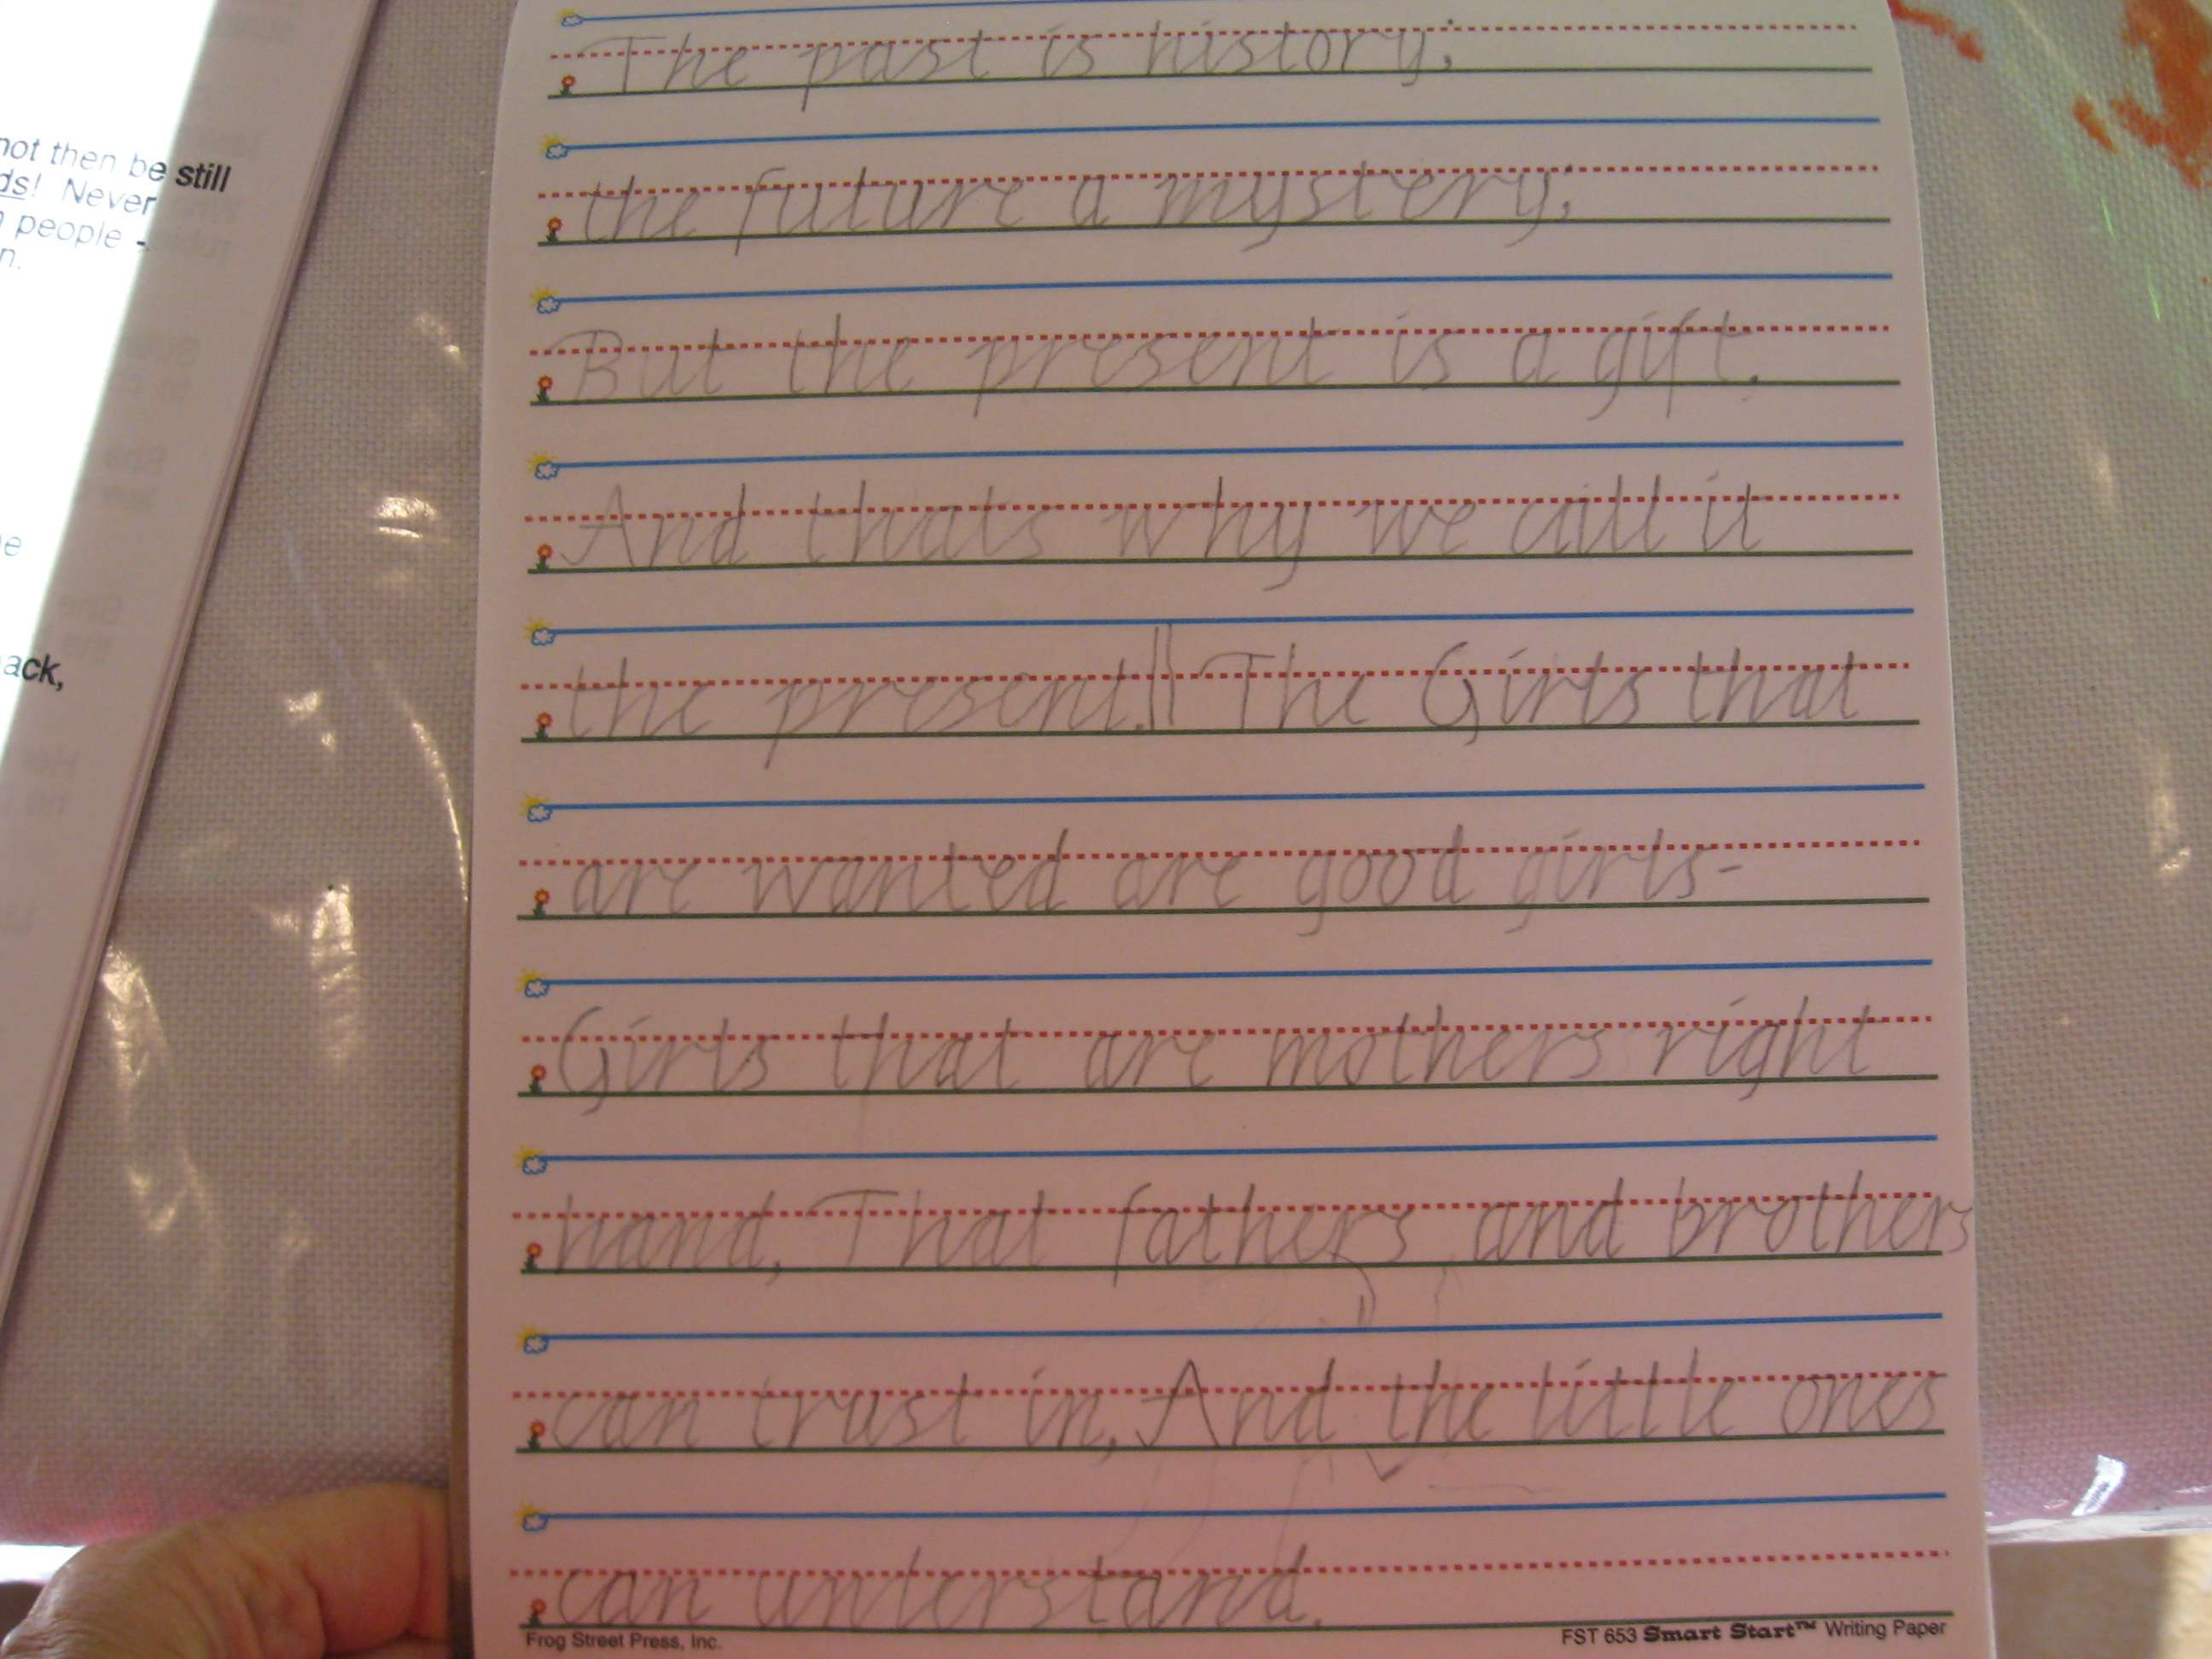 not then be still
ds! Never
people -
n.
e
ack,
The past is history;
the future a mystery;
But the present is a gift.
And thats why we call it
the present.|| The Girls that
are wanted are good girls-
Girls that are mothers right
hand, That fathers and brothers
can trust in, And the little ones
can understand.
Frog Street Press, Inc.
FST 653 Smart Start™ Writing Paper